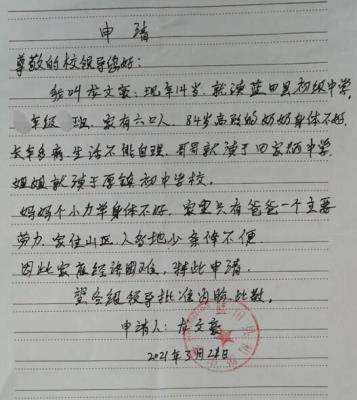 申请
尊敬的校领导您好:
我叫龙文豪,现年14岁,就读蓝田县初级中学,
年级 班,家有六口人,84岁高龄的奶奶身体不好,
长年多病,生活不能自理,哥哥就读于 中学,
姐姐就读于 镇初中学校。
妈妈个小力单身体不好,家里只有爸爸一个主要
劳力,家住山区,人多地少,条件不便
因此家庭经济困难,特此申请
望各级领导批准 此致。
申请人:龙文豪
2021年3月22日